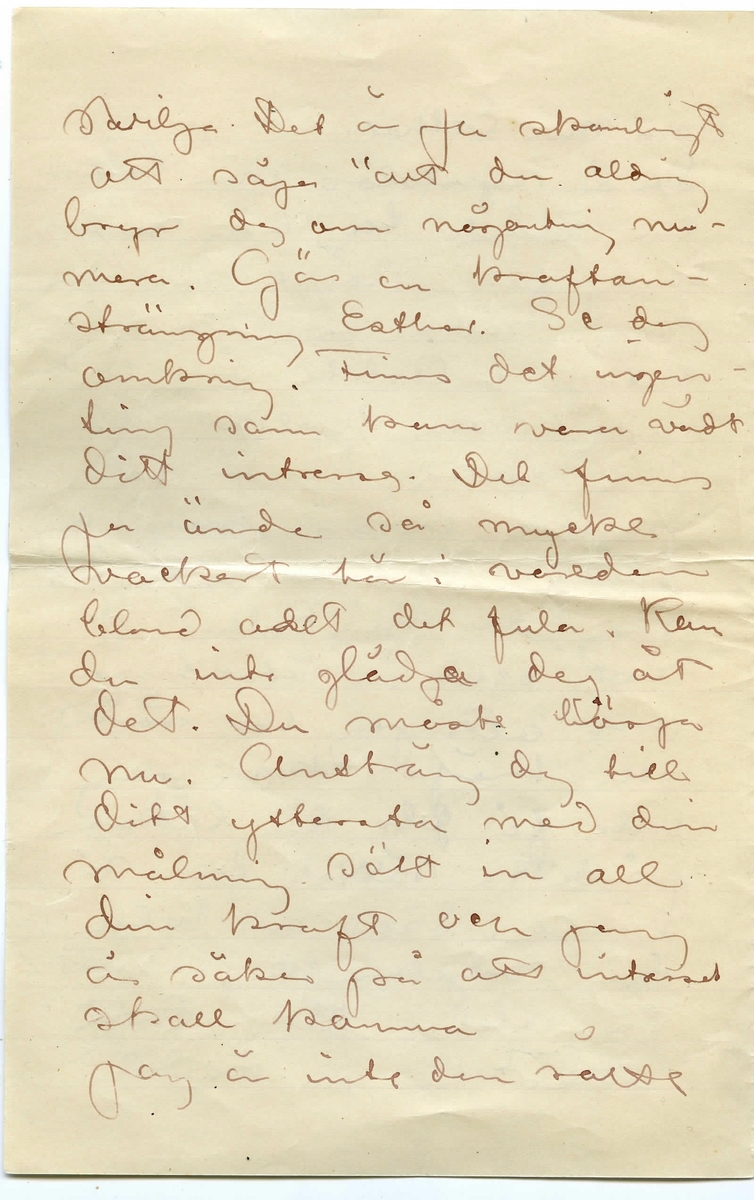 Det är ju skamligt
att säga "att du aldrig
bryr dig om någonting nu-
mera. Gör en kraftan-
strängning Esther. Se dig
omkring. Finns det ingen-
ting som kan vara värdt
ditt intresse. Det finns
ju ändå så mycket
vackert här i världen
bland allt det fula. Kan
du inte glädja dig åt
det. Du måste börja
nu. Ansträng dig till
ditt ytterska med din
målning sätt in all
din kraft och jag
är säker på att intresset
skall komma
jag är inte den rätte